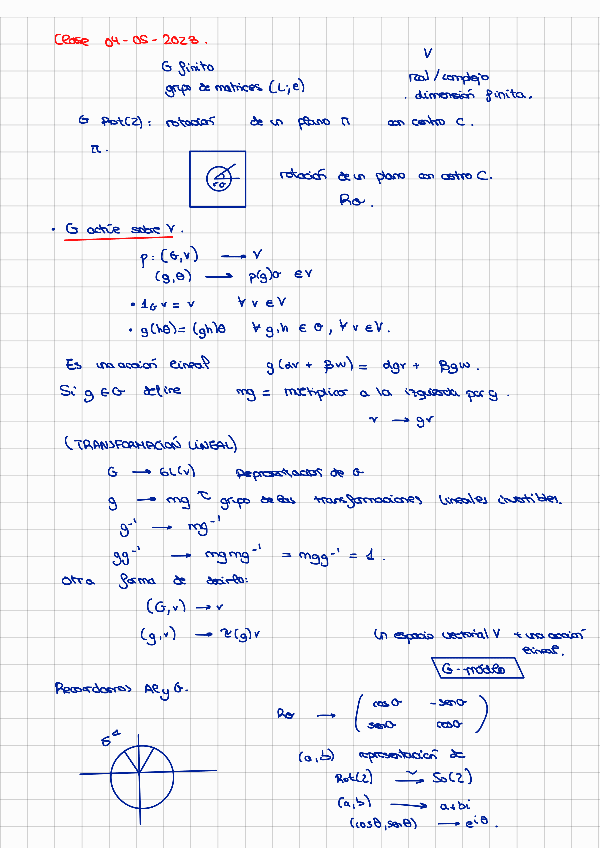 Clase 04-05-2023.
G finito
grupo de matrices (L; e)
V
real/complejo
. dimensión finita.
G Rot(2): rotación de un plano π con centro C.
π.
Rσ
rotación de un plano con centro C.
Rσ.
• G actúe sobre V.
p: (G,v) → V
(g,θ) → p(g)σ ∈ V
• 1G v = v ∀ v ∈ V
• g(hθ) = (gh)θ ∀ g,h ∈ G, ∀ v ∈ V.
Es una acción lineal g(αv + βw) = αgv + βgw.
Si g ∈ G define mg = multiplicar a la izquierda por g.
v → gv
(TRANSFORMACIÓN LINEAL)
G → GL(v) Representación de G
g → mg grupo de las transformaciones lineales invertibles.
g⁻¹ → mg⁻¹
gg⁻¹ → mgmg⁻¹ = mgg⁻¹ = 1.
Otra forma de decirlo:
(G,v) → v
(g,v) → τ(g)v
Un espacio vectorial V + una acción
lineal.
G-módulo
Recordamos AL y G.
Rσ → ( cosσ -senσ
senσ cosσ )
S¹
(a,b) representación de
Rot(2) → SO(2)
(a,b) → a+bi
(cosθ, senθ) → e^iθ.